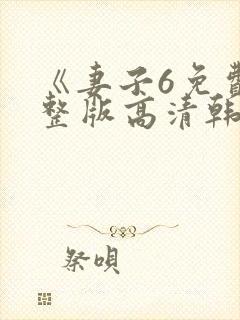 《妻子6免费
整版高清韩
祭唄